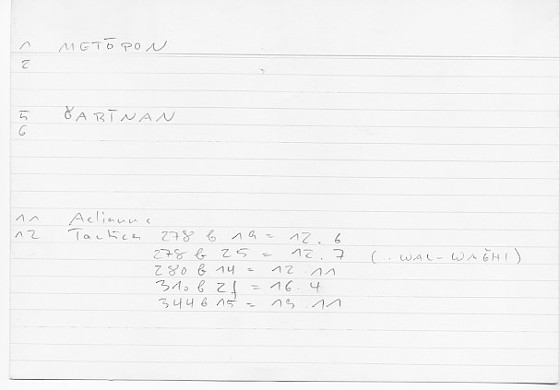 1 METŌPON
2
5 ǦABĪNAN
6
11 Aelianus
12 Tactica 278 b 19 = 12. 6
278 b 25 = 12. 7 (. WAL-WAǦHI)
280 b 14 = 12 11
310 b 2f = 16. 4
344 b 15 = 19 11